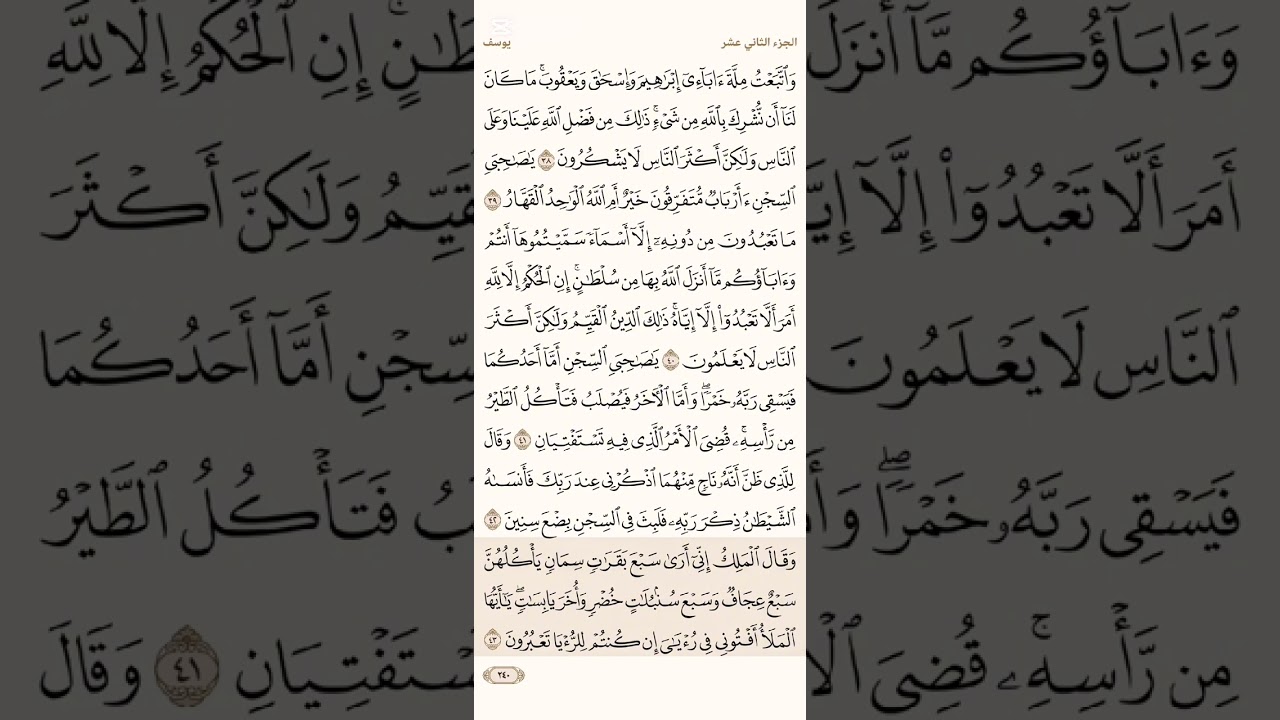 الجزء الثاني عشر
يوسف
وَٱتَّبَعْتُ مِلَّةَ ءَابَآءِىٓ إِبْرَٰهِيمَ وَإِسْحَٰقَ وَيَعْقُوبَ ۚ مَا كَانَ
لَنَآ أَن نُّشْرِكَ بِٱللَّهِ مِن شَىْءٍ ۚ ذَٰلِكَ مِن فَضْلِ ٱللَّهِ عَلَيْنَا وَعَلَى
ٱلنَّاسِ وَلَٰكِنَّ أَكْثَرَ ٱلنَّاسِ لَا يَشْكُرُونَ ٣٨ يَٰصَٰحِبَىِ
ٱلسِّجْنِ ءَأَرْبَابٌ مُّتَفَرِّقُونَ خَيْرٌ أَمِ ٱللَّهُ ٱلْوَٰحِدُ ٱلْقَهَّارُ ٣٩
مَا تَعْبُدُونَ مِن دُونِهِۦٓ إِلَّآ أَسْمَآءً سَمَّيْتُمُوهَآ أَنتُمْ
وَءَابَآؤُكُم مَّآ أَنزَلَ ٱللَّهُ بِهَا مِن سُلْطَٰنٍ ۚ إِنِ ٱلْحُكْمُ إِلَّا لِلَّهِ
أَمَرَ أَلَّا تَعْبُدُوٓا۟ إِلَّآ إِيَّاهُ ۚ ذَٰلِكَ ٱلدِّينُ ٱلْقَيِّمُ وَلَٰكِنَّ أَكْثَرَ
ٱلنَّاسِ لَا يَعْلَمُونَ ٤٠ يَٰصَٰحِبَىِ ٱلسِّجْنِ أَمَّآ أَحَدُكُمَا
فَيَسْقِى رَبَّهُۥ خَمْرًا ۖ وَأَمَّا ٱلْءَاخَرُ فَيُصْلَبُ فَتَأْكُلُ ٱلطَّيْرُ
مِن رَّأْسِهِۦ ۚ قُضِىَ ٱلْأَمْرُ ٱلَّذِى فِيهِ تَسْتَفْتِيَانِ ٤١ وَقَالَ
لِلَّذِى ظَنَّ أَنَّهُۥ نَاجٍ مِّنْهُمَا ٱذْكُرْنِى عِندَ رَبِّكَ فَأَنسَىٰهُ
ٱلشَّيْطَٰنُ ذِكْرَ رَبِّهِۦ فَلَبِثَ فِى ٱلسِّجْنِ بِضْعَ سِنِينَ ٤٢
وَقَالَ ٱلْمَلِكُ إِنِّىٓ أَرَىٰ سَبْعَ بَقَرَٰتٍ سِمَانٍ يَأْكُلُهُنَّ
سَبْعٌ عِجَافٌ وَسَبْعَ سُنۢبُلَٰتٍ خُضْرٍ وَأُخَرَ يَابِسَٰتٍ ۖ يَٰٓأَيُّهَا
ٱلْمَلَأُ أَفْتُونِى فِى رُءْيَٰىَ إِن كُنتُمْ لِلرُّءْيَا تَعْبُرُونَ ٤٣
٢٤٠